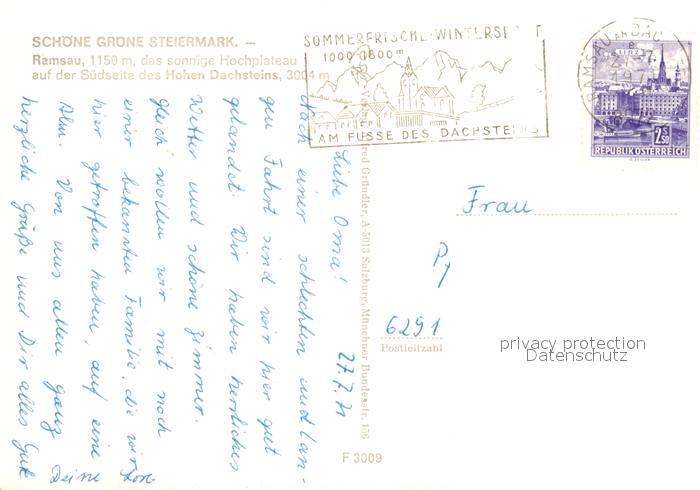 SCHÖNE GRÜNE STEIERMARK. —
Ramsau, 1150 m, das sonnige Hochplateau
auf der Südseite des Hohen Dachsteins, 3004 m
SOMMERFRISCHE-WINTERSPORT
1000-1800m
AM FUSSE DES DACHSTEINS
RAMSAU AM DACH
2S50
REPUBLIK ÖSTERREICH
27.7.71
Liebe Oma!
Nach einer schlechten und lan-
gen Fahrt sind wir hier gut
gelandet. Wir haben herrliches
Wetter und schöne Zimmer.
Gleich wollen wir mit noch
einer bekannten Familie, die wir
hier getroffen haben, auf eine
Alm. Von uns allen ganz
herzliche Grüße und Dir alles Gute
Deine
Gründler, A-5013 Salzburg, Münchner Bundesstr. 156
Frau
6291
Postleitzahl
F 3009
privacy protection
Datenschutz